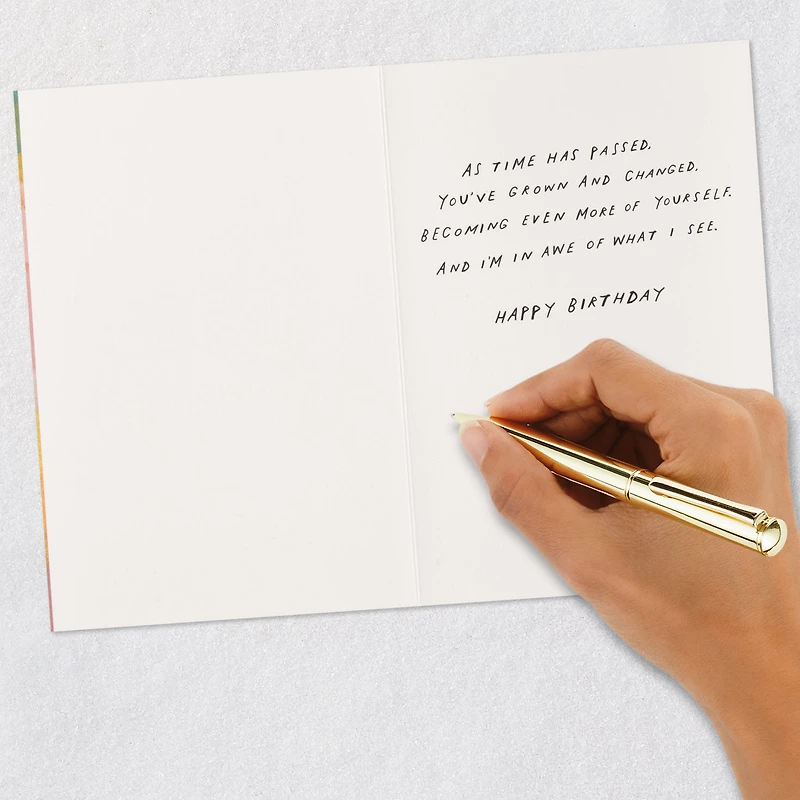 AS TIME HAS PASSED,
YOU'VE GROWN AND CHANGED,
BECOMING EVEN MORE OF YOURSELF.
AND I'M IN AWE OF WHAT I SEE.
HAPPY BIRTHDAY